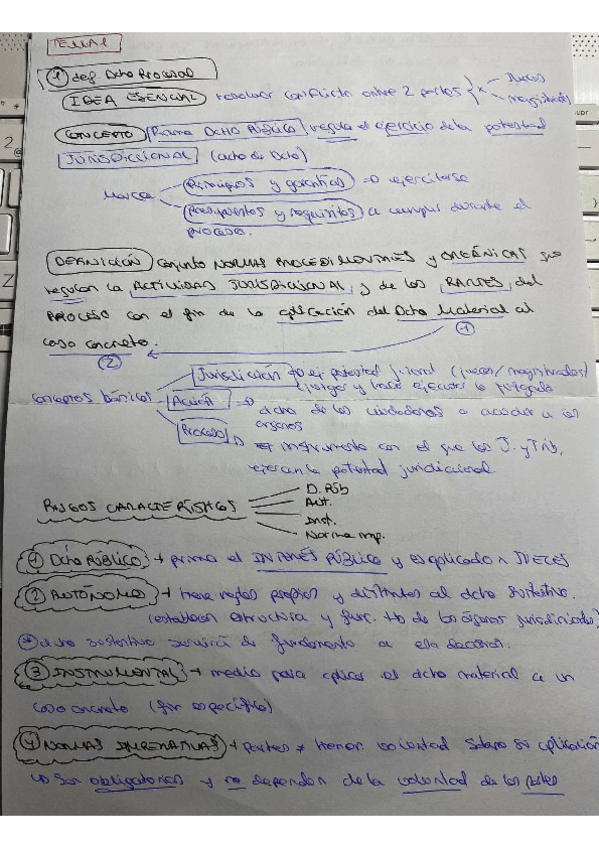 TEMA 1
① def Dcho Procesal
IDEA ESENCIAL → resolver conflicto entre 2 partes x Jueces
magistrados
CONCEPTO Rama DCHO PÚBLICO regula el ejercicio de la potestad
JURISDICCIONAL (acto de Dcto)
Marca principios y garantías => ejercitarse
presupuestos y requisitos a cumplir durante el
proceso.
DEFINICIÓN Conjunto NORMAS PROCEDIMENTALES y ORGÁNICAS que
regulan la ACTIVIDAD JURISDICCIONAL y de las PARTES del
PROCESO con el fin de la aplicación del Dcho Material al
caso concreto. ①
②
Conceptos básicos Jurisdicción → ej potestad jurid (jueces/magistrados)
juzgar y hacer ejecutar lo juzgado
Acción => dcho de los ciudadanos a acudir a los
órganos
Proceso → instrumento con el que los J. y Trib.
ejercen la potestad jurisdiccional
RASGOS CARACTERÍSTICOS D. Púb
Aut.
Inst.
Norma imp.
① Dcho PÚBLICO → prima el INTERÉS PÚBLICO y es aplicado x JUECES
② AUTÓNOMO → tiene reglas propias y distintas al dcho sustantivo.
(establecen estructura y func. de los órganos jurisdiccionales)
* dcho sustantivo servirá de fundamento a esa decisión.
③ INSTRUMENTAL → medio para aplicar el dcho material a un
caso concreto (fin específico)
④ NORMAS IMPERATIVAS → partes ≠ tienen voluntad sobre su aplicación
↳ Son obligatorias y no dependen de la voluntad de las partes